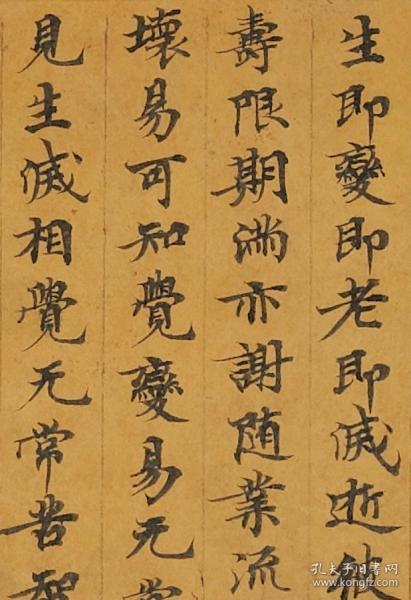 生即變即老即滅逝彼
壽限期滿亦謝随業流
壞易可知覺變易无常
見生滅相覺无常苦智
孔夫子旧书网
www.kongfz.com